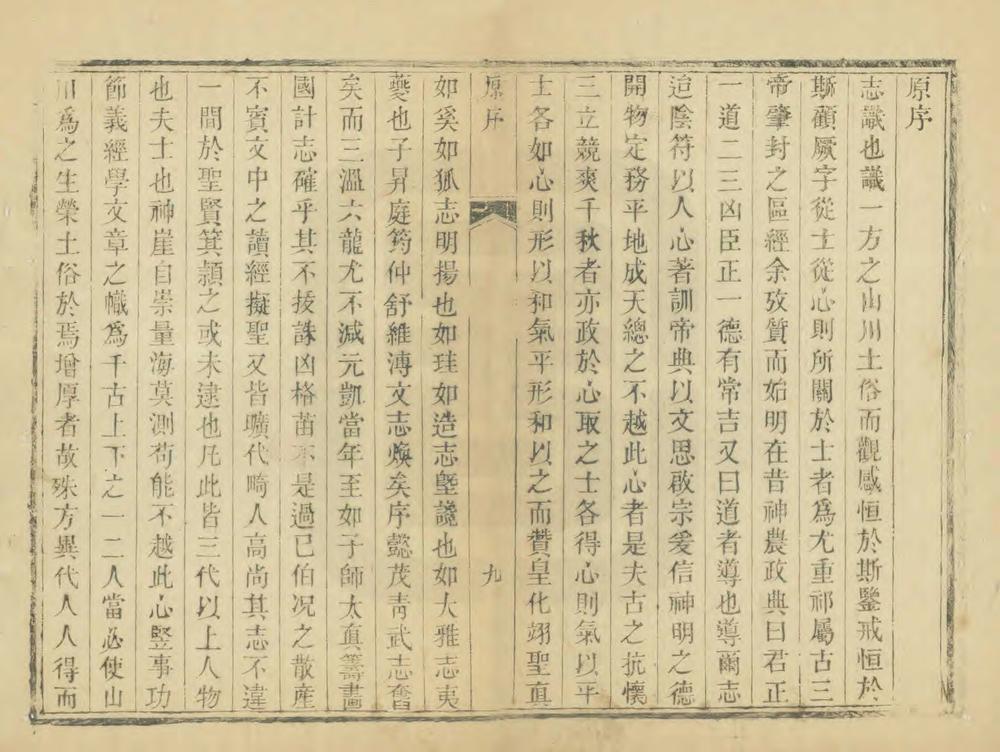 原序
志識也識一方之山川土俗而觀感恒於斯鑒戒恒於
斯顧厥字從士從心則所關於士者為尤重祁屬古三
帝肇封之區經余攷質而始明在昔神農政典曰君正
一道二三凶臣正一德有常吉又曰道者導也導爾志
迨陰符以人心著訓帝典以文思啟宗爰信神明之德
開物定務平地成天總之不越此心者是夫古之抗懷
三立競爽千秋者亦政於心取之士各得心則氣以平
士各如心則形以和氣平形和以之而贊皇化翊聖真
原序
九
如奚如狐志明揚也如珪如造志墍讒也如大雅志夷
夔也子昇庭筠仲舒維溥文志煥矣序懿茂靑武志奮
矣而三溫六龍尤不減元凱當年至如子師太真籌畫
國計志確乎其不拔誅凶格苗不是過已伯况之散産
不賓文中之讀經擬聖又皆曠代畸人高尚其志不違
一間於聖賢箕潁之或未逮也凡此皆三代以上人物
也夫士也神崖自崇量海莫測苟能不越此心竪事功
節義經學文章之幟為千古上下之一二人當必使山
川為之生榮土俗於焉增厚者故殊方異代人人得而